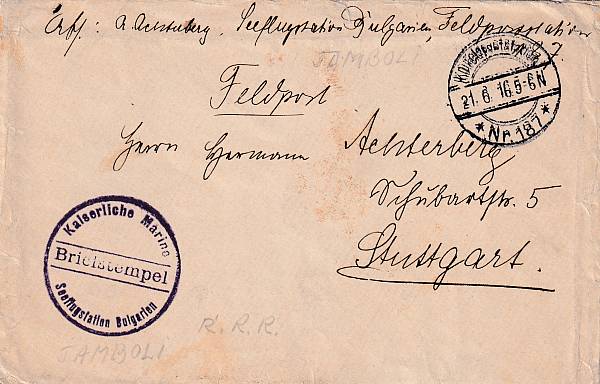 Abs: A. Achterberg, Seeflugstation Bulgarien, Feldpoststation
7.
JAMBOLI
21.6.16.5-6N
* Nr. 187 *
Feldpost
Herrn Hermann Achterberg
Schubartstr. 5
Stuttgart.
Kaiserliche Marine
Briefstempel
Seeflugstation Bulgarien
R.R.R.
JAMBOLI